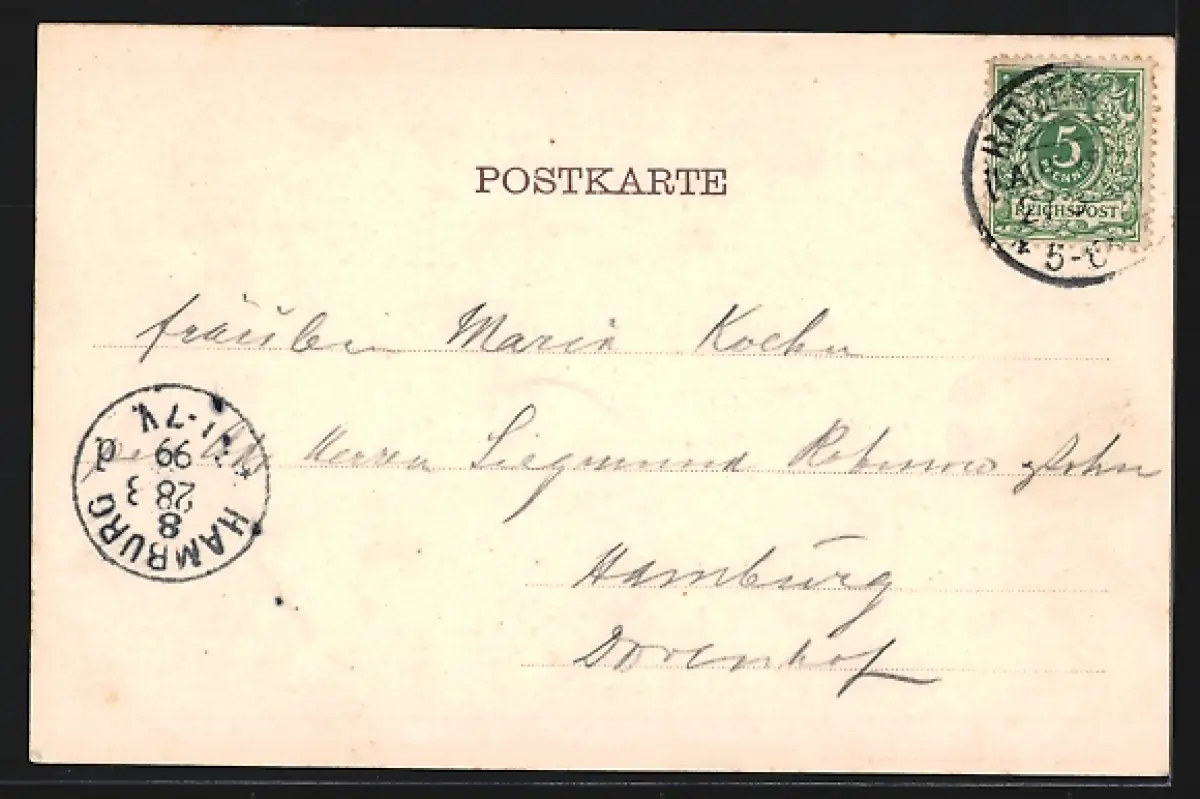 POSTKARTE
5
PFENNIG
REICHSPOST
5-6
Fräulein Maria Kochn
Herrn Siegmund Robinow & Sohn
Hamburg
Dovenhof
HAMBURG
8
28 3
99
1-7V.